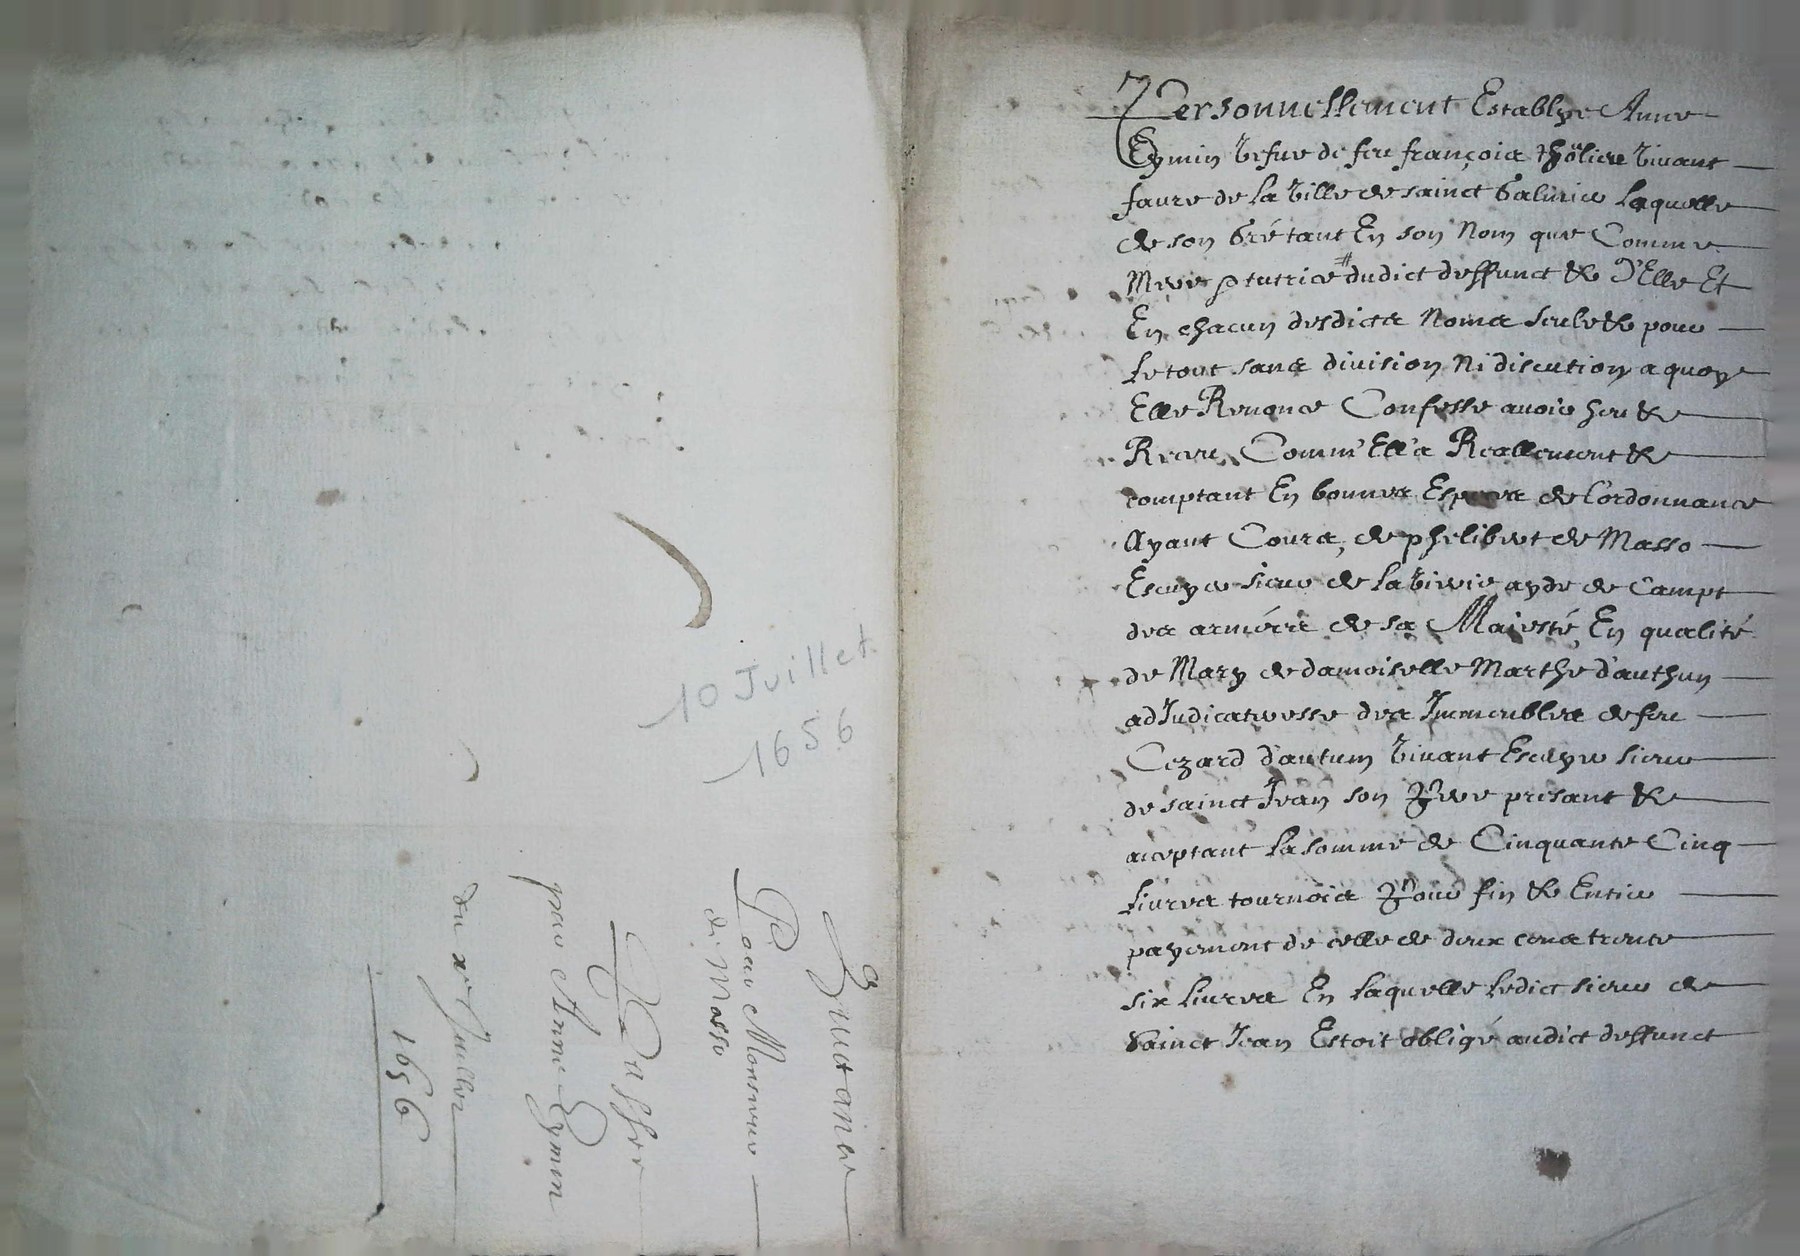 10 Juillet
1656
Quitance
Pour Monsieur
de Masso
Passee
par Anne Eymin
du xe Juillet
1656
Personnellement Establye Anne
Eymin vefue de feu françois thôliere viuant
faure de la ville de sainct Galmier laquelle
de son Gré tant En son Nom que Comme
Mere & tutrice # dudict deffunct & d'Elle Et
En chacun desdicts Noms seule & pour
le tout sans diuision Ni discution a quoye
Elle Renonce Confesse auoir heu &
Receu Comm'Ell'a Reallement &
comptant En bonnes Especes de l'ordonnance
Ayant Cours, de phelibert de Masso
Escuyer sieur de la ayde de Campt
des armées de sa Maiesté, En qualité
de Mary de damoiselle Marthe d'authun
adIudicatresse des Immeubles de feu
Cezard d'autum viuant Escuyer sieur
de sainct Iean son Pere presant &
aceptant la somme de Cinquante Cinq
liures tournois Pour fin & Entier
payement de celle de deux cens trente
six liures En laquelle ledict sieur de
Sainct Iean Estoit obligé audict deffunct